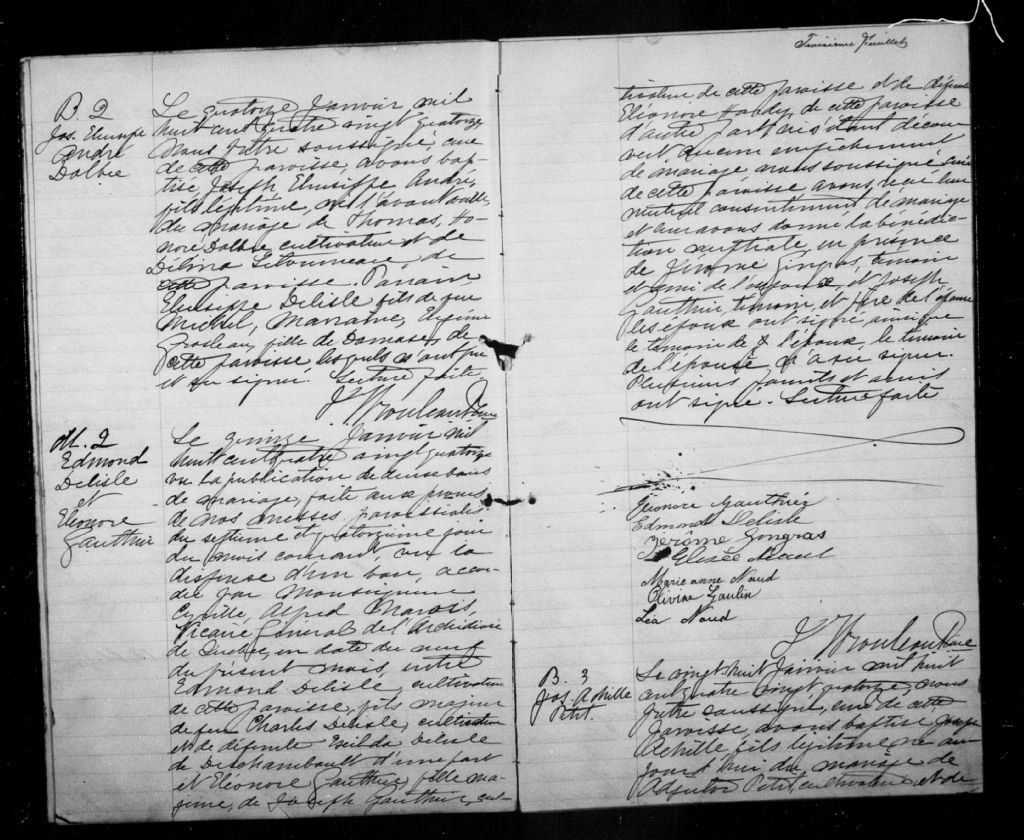 B. 2
Jos. Elusippe
André
Dolbec
Le quatorze Janvier mil
huit cent quatre vingt quatorze
Nous Prêtre soussigné, curé
de cette paroisse, avons bap-
tisé, Joseph Elusippe André,
fils légitime, né l'avant veille
du mariage de Thomas, Ho-
noré Dolbec, cultivateur et de
Délima Létourneau, de
cette paroisse. Parrain,
Elusippe Delisle fils de feu
Michel, Marraine, Eugénie
Grosleau, fille de Damase, de
cette paroisse, lesquels n'ont pu
et su signer. Lecture faite
Rouleau Ptre
M. 2
Edmond
Delisle
et
Eléonore
Gauthier
Le quinze Janvier mil
huit cent quatre vingt quatorze
vu la publication de deux bans
de mariage, faite aux prones
de nos messes paroissiales
du septième et quatorzième jour
du mois courant, vu la
dispense d'un ban, accor-
dée par Monseigneur
Cyrille, Alfred Marois,
Vicaire Général de l'Archidiocèse
de Québec, en date du neuf
du présent mois, entre
Edmond Delisle, cultivateur
de cette paroisse, fils majeur
de feu Charles Delisle, cultivateur
et de défunte Exilda Delisle
de Deschambault d'une part
et Eléonore Gauthier, fille ma-
jeure, de Joseph Gauthier, cul-
Troisième Feuillet
tivateur de cette paroisse et de défunte
Eléonore Hardy, de cette paroisse
d'autre part ne s'étant décou-
vert aucun empêchement
de mariage, nous soussigné curé
de cette paroisse avons reçu leur
mutuel consentement de mariage
et leur avons donné la bénédic-
tion nuptiale en présence
de Jérôme Gingras, témoin
et ami de l'époux, et Joseph
Gauthier, témoin, et père de l'épouse
Les époux ont signé, ainsi que
le témoin de l'époux, le témoin
de l'épouse n'a su signer.
Plusieurs parents et amis
ont signé. Lecture faite
Eléonore Gauthier
Edmond Delisle
Jérôme Gingras
Elisée
Marie anne Naud
Olivine Gaulin
Léa Naud
Rouleau Ptre
B. 3
Jos. Achille
Petit.
Le vingt huit Janvier mil huit
cent quatre vingt quatorze, nous
Prêtre soussigné, curé de cette
paroisse, avons baptisé Joseph
Achille, fils légitime, né au-
jourd'hui du mariage de
Adjutor Petit, cultivateur et de